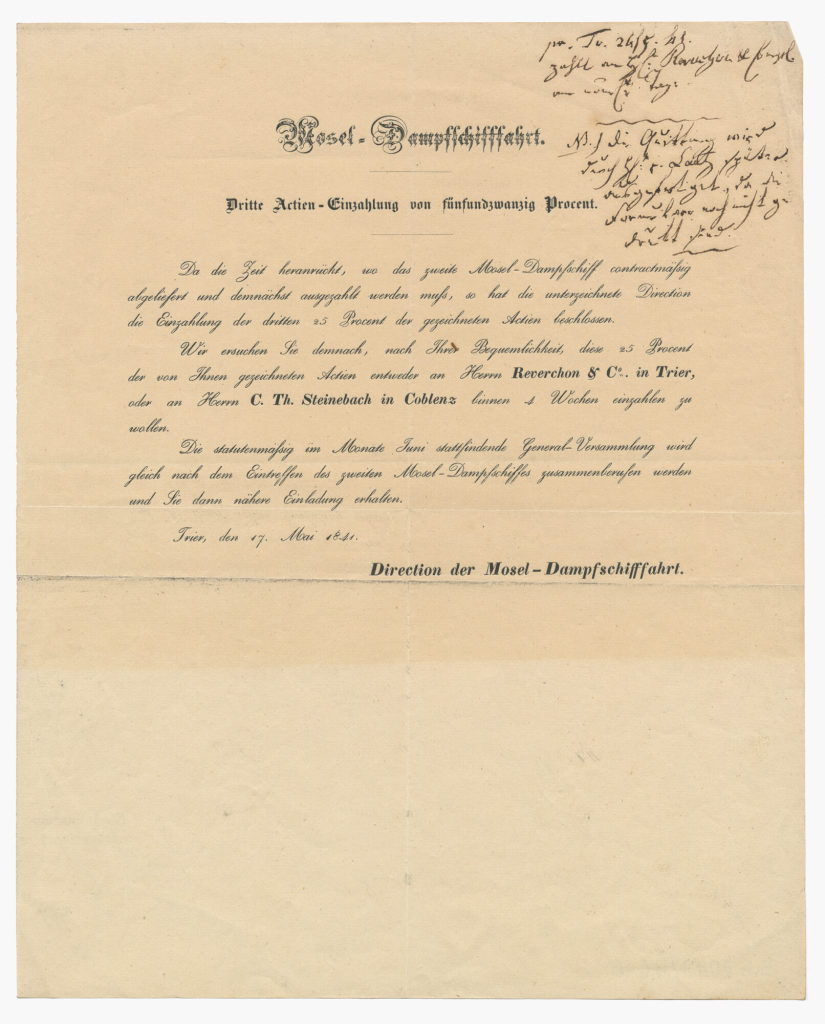 pr. Tr. 24/5. 41.
zahlt an Reverchon & Comp.
N.) die Quittung wird
durch H. v. später
ausgefertigt, da die
Formulare noch nicht ge
druckt sind.
Mosel-Dampfschifffahrt.
Dritte Actien-Einzahlung von fünfundzwanzig Procent.
Da die Zeit heranrückt, wo das zweite Mosel-Dampfschiff contractmäßig
abgeliefert und demnächst ausgezahlt werden muß, so hat die unterzeichnete Direction
die Einzahlung der dritten 25 Procent der gezeichneten Actien beschlossen.
Wir ersuchen Sie demnach, nach Ihrer Bequemlichkeit, diese 25 Procent
der von Ihnen gezeichneten Actien entweder an Herrn Reverchon & Co. in Trier,
oder an Herrn C. Th. Steinebach in Coblenz binnen 4 Wochen einzahlen zu
wollen.
Die statutenmäßig im Monate Juni stattfindende General-Versammlung wird
gleich nach dem Eintreffen des zweiten Mosel-Dampfschiffes zusammenberufen werden
und Sie dann nähere Einladung erhalten.
Trier, den 17. Mai 1841.
Direction der Mosel-Dampfschifffahrt.